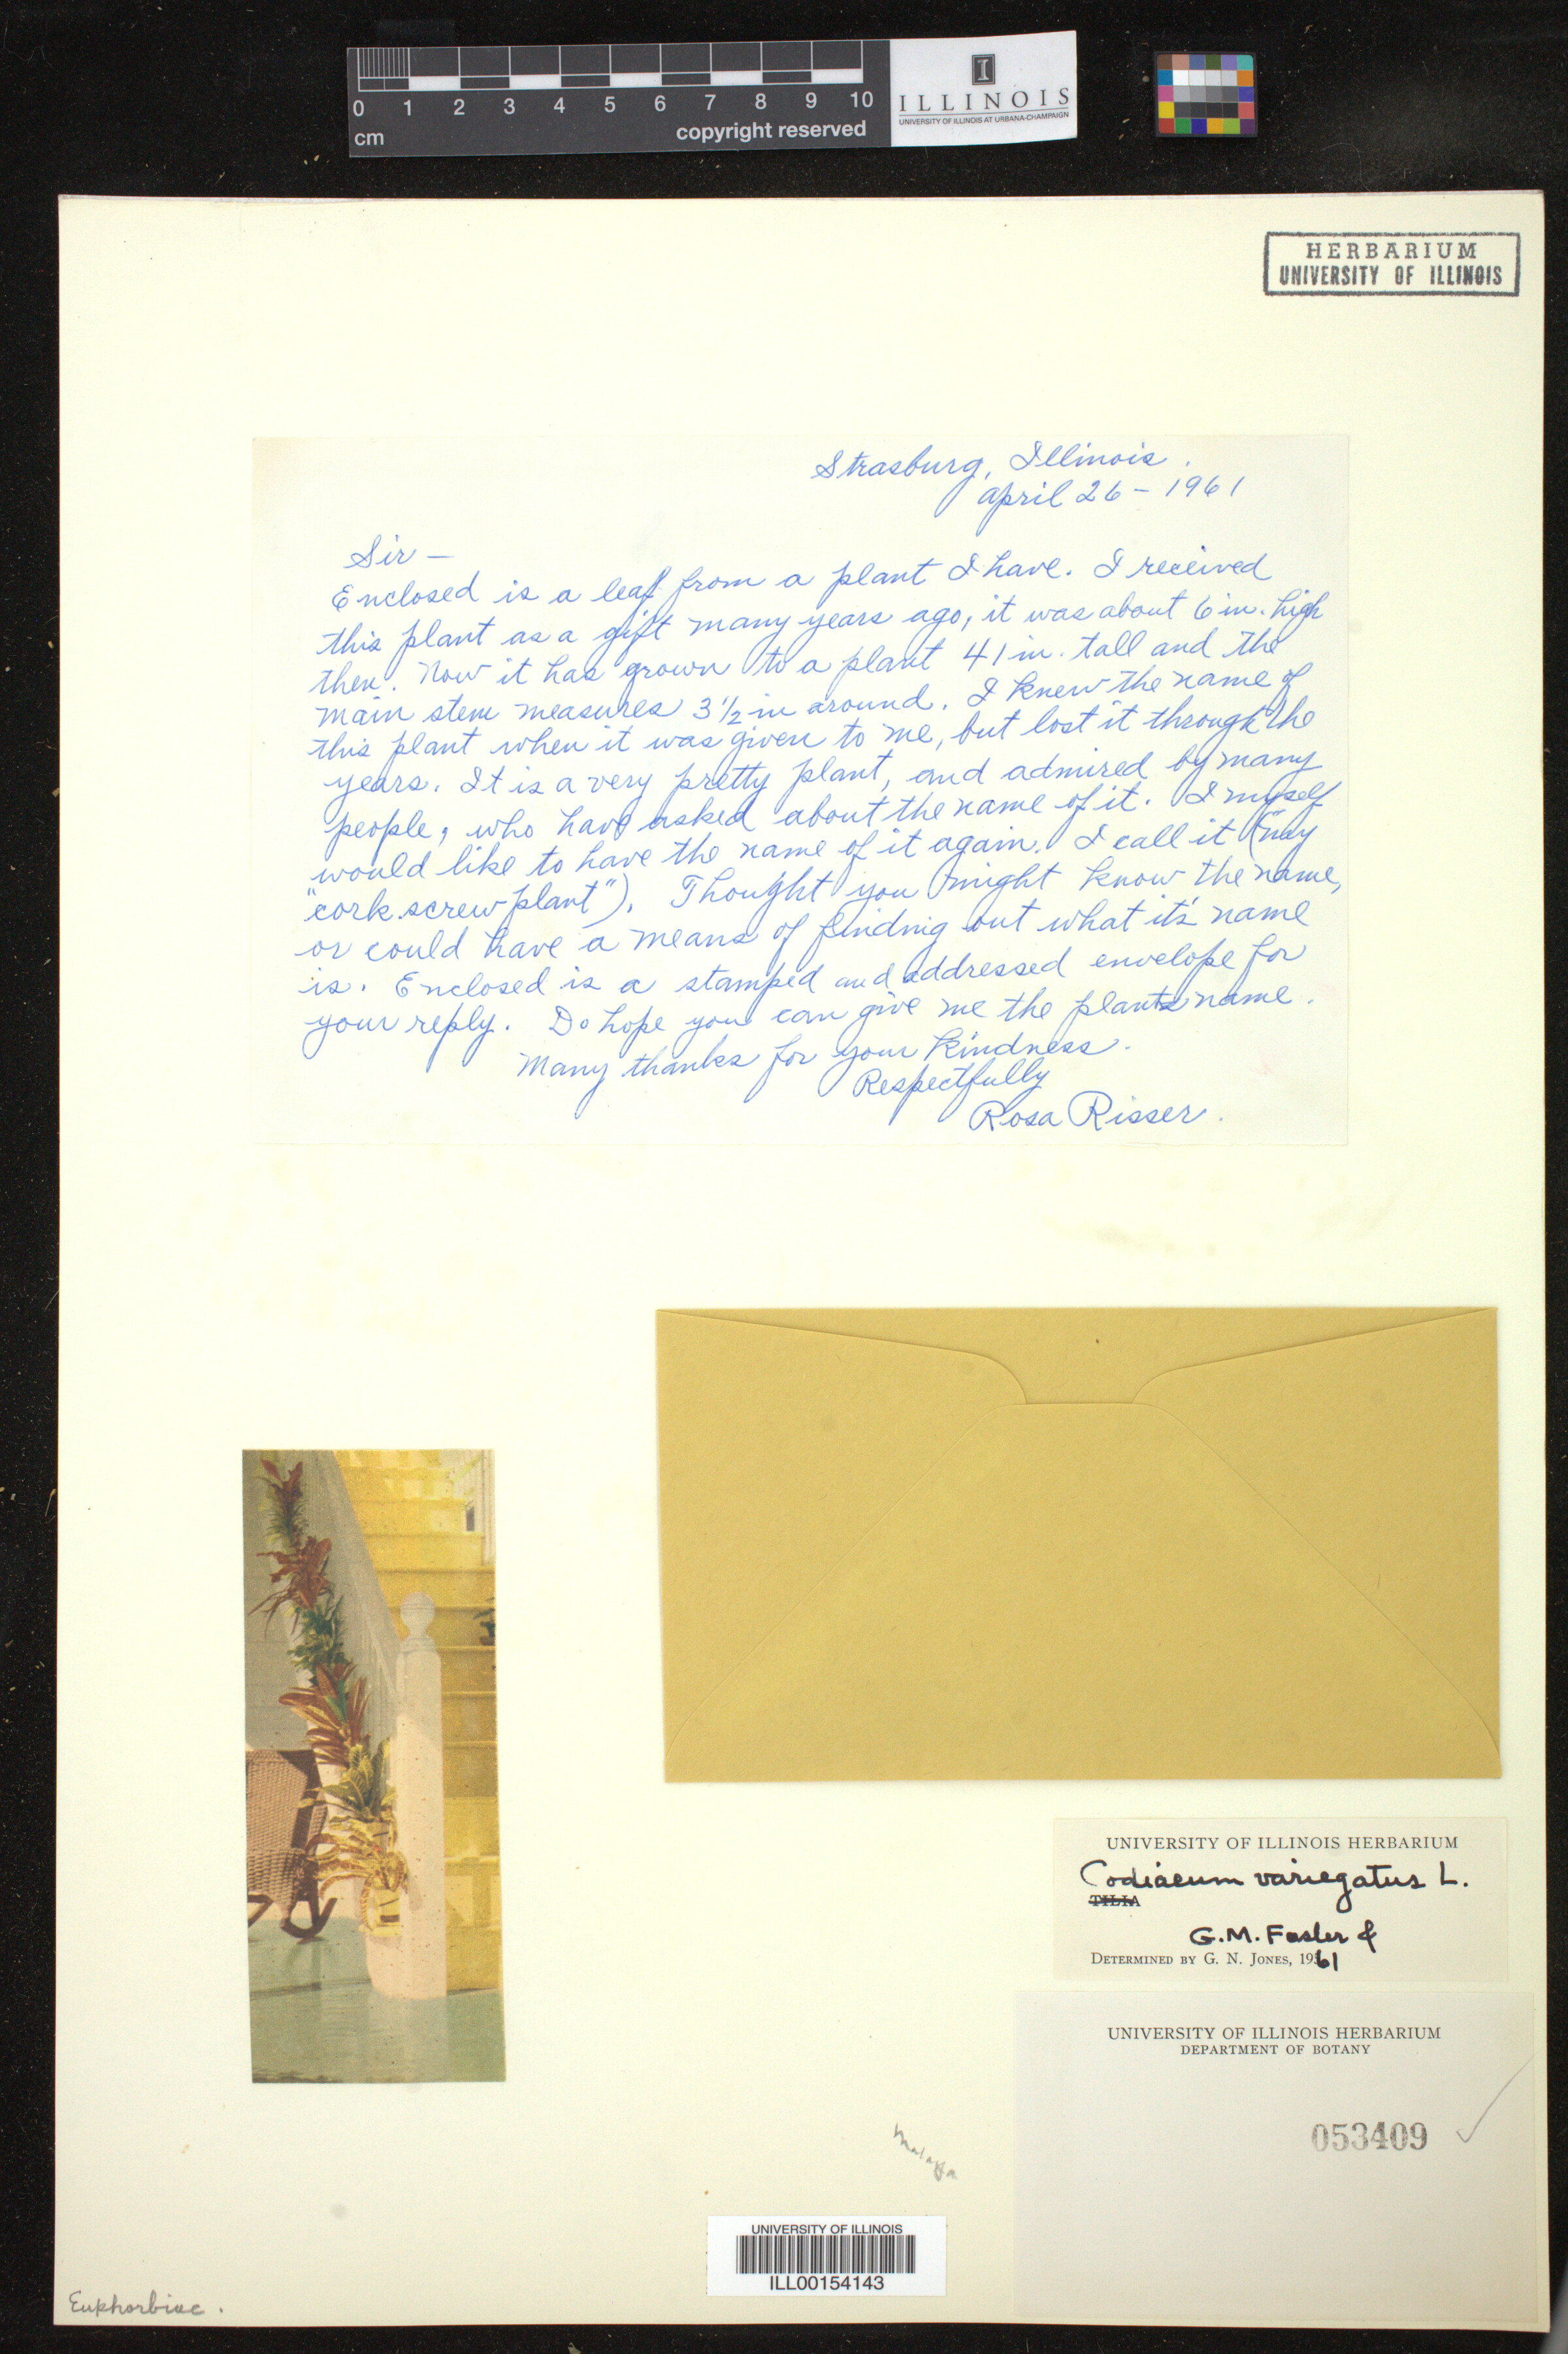 0 1 2 3 4 5 6 7 8 9 10
cm copyright reserved
I
ILLINOIS
UNIVERSITY OF ILLINOIS AT URBANA-CHAMPAIGN
HERBARIUM
UNIVERSITY OF ILLINOIS
Strasburg, Illinois.
April 26 - 1961
Sir —
Enclosed is a leaf from a plant I have. I received
this plant as a gift many years ago, it was about 6 in. high
then. Now it has grown to a plant 41 in. tall and the
main stem measures 3 1/2 in around. I knew the name of
this plant when it was given to me, but lost it through the
years. It is a very pretty plant, and admired by many
people, who have asked about the name of it. I myself
would like to have the name of it again. I call it (my
"cork screw plant"). Thought you might know the name,
or could have a means of finding out what it's name
is. Enclosed is a stamped and addressed envelope for
your reply. Do hope you can give me the plants name.
Many thanks for your kindness.
Respectfully
Rosa Risser.
UNIVERSITY OF ILLINOIS HERBARIUM
Codiaeum variegatus L.
TILIA
G.M. Fosler &
DETERMINED BY G. N. JONES, 1961
UNIVERSITY OF ILLINOIS HERBARIUM
DEPARTMENT OF BOTANY
053409
Malaya
UNIVERSITY OF ILLINOIS
ILL00154143
Euphorbiac.